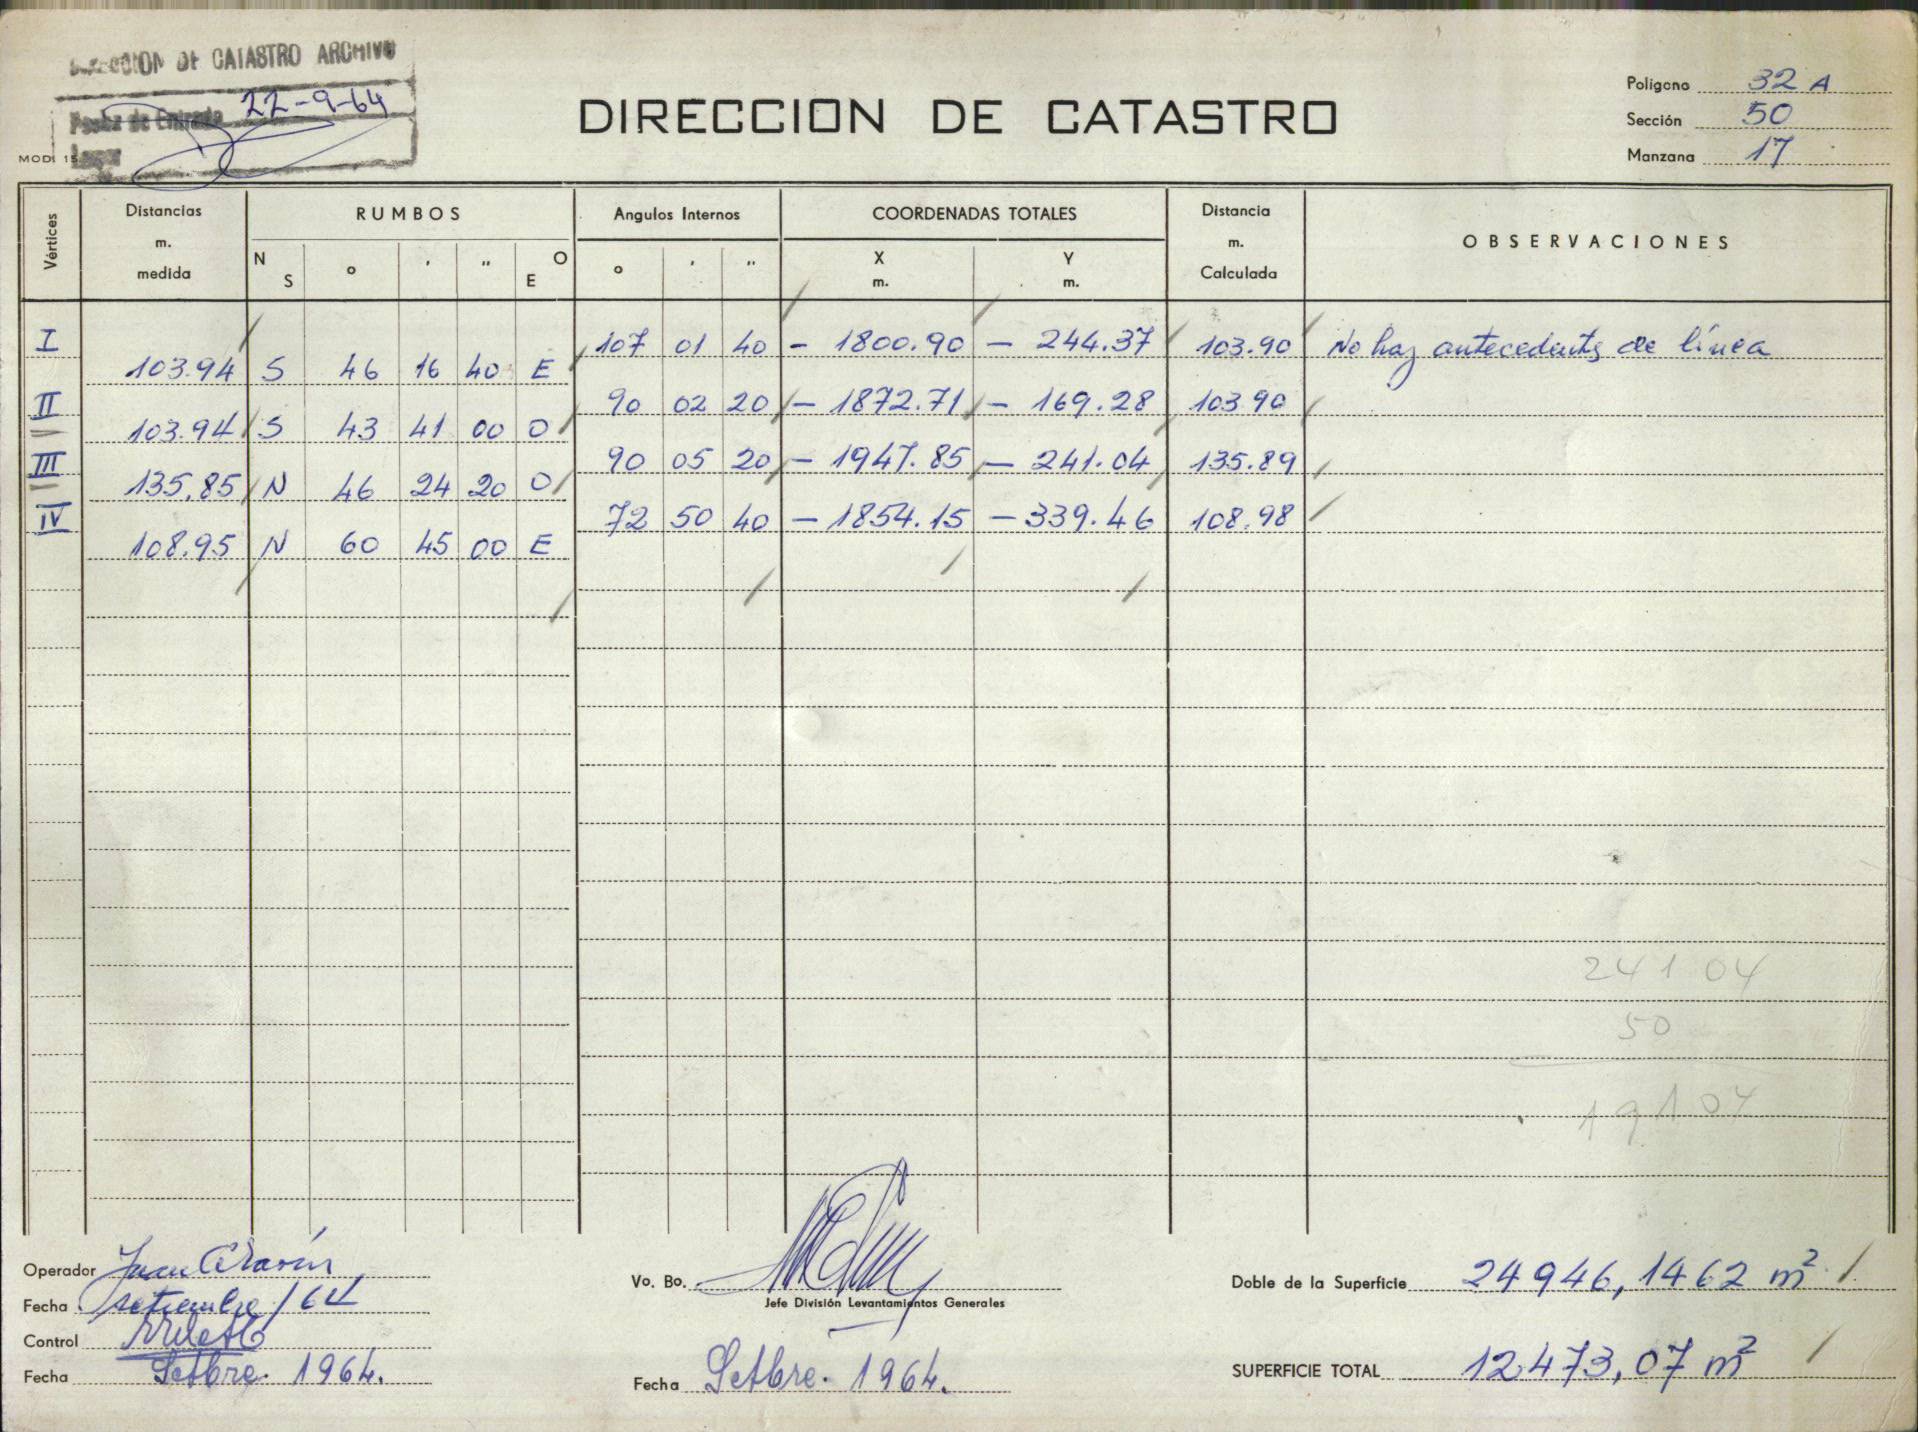 DIRECCION DE CATASTRO ARCHIVO
Fecha de Entrada 22-9-64
MOD. 15
DIRECCION DE CATASTRO
Polígono 32 A
Sección 50
Manzana 17
Vértices
Distancias m. medida
RUMBOS
Angulos Internos
COORDENADAS TOTALES
Distancia m. Calculada
OBSERVACIONES
N S ° ' " O E
° ' "
X m. Y m.
I 107 01 40 - 1800.90 - 244.37 103.90 No hay antecedents de línea
103.94 S 46 16 40 E
II 90 02 20 - 1872.71 - 169.28 103.90
103.94 S 43 41 00 O
III 90 05 20 - 1947.85 - 241.04 135.89
135,85 N 46 24 20 O
IV 72 50 40 - 1854.15 - 339.46 108.98
108.95 N 60 45 00 E
241 04
50
191 04
Operador Juan
Fecha setiembre/64
Control
Fecha Setbre. 1964.
Vo. Bo.
Jefe División Levantamientos Generales
Fecha Setbre. 1964.
Doble de la Superficie 24946,1462 m²
SUPERFICIE TOTAL 12473,07 m²